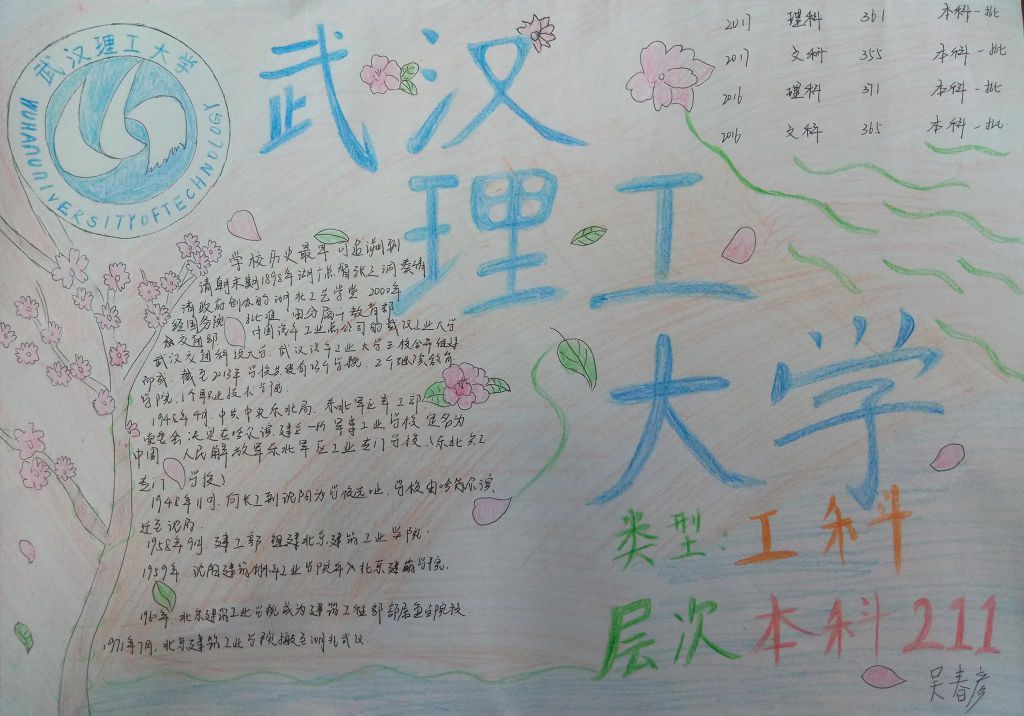 武汉理工大学
WUHAN UNIVERSITY OF TECHNOLOGY
武汉
理工
大学
2017 理科 361 本科一批
2017 文科 355 本科一批
2016 理科 371 本科一批
2016 文科 365 本科一批
学校历史最早可追溯到
清朝末期1898年湖广总督张之洞奏请
清政府创办的湖北工艺学堂 2000年
经国务院批准 由分属于教育部
交通部 中国汽车工业总公司的武汉工业大学
武汉交通科技大学、武汉汽车工业大学三校合并组建
而成. 截至2013年学校共设有23个学院、2个继续教育
学院、1个职业技术学院.
1948年9月, 中共中央东北局、东北军区军工部
委员会决定在哈尔滨建立一所军事工业学校 定名为
中国人民解放军东北军区工业专门学校、(东北军工
专门学校)
1948年11月, 何长工到沈阳为学校选址, 学校由哈尔滨
迁至沈阳.
1958年9月, 建工部组建北京建筑工业学院.
1959年, 沈阳建筑材料工业学院并入北京建筑学院.
1960年, 北京建筑工业学院成为建筑工程部部属重点院校
1971年7月, 北京建筑工业学院搬至湖北武汉.
类型: 工科
层次 本科 211
吴春彦